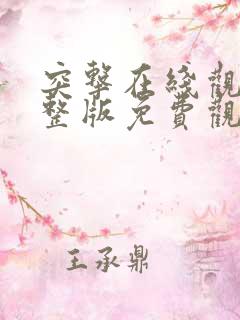 突擊在綫觀
整版免費觀
王承鼎